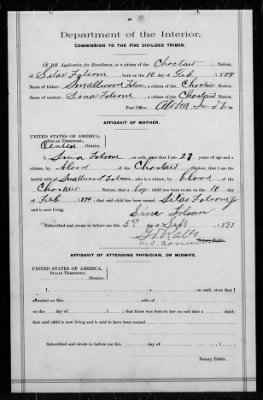 Department of the Interior,
COMMISSION TO THE FIVE CIVILIZED TRIBES.
IN RE Application for Enrollment, as a citizen of the Choctaw Nation,
of Silas Folsom, born on the 10 day of Feb, 1894
Name of father: Smallwood Folsom, a citizen of the Choctaw Nation.
Name of mother: Sina Folsom a citizen of the Choctaw Nation.
Post Office, Atoka
AFFIDAVIT OF MOTHER.
UNITED STATES OF AMERICA,
INDIAN TERRITORY,
Central District.
I, Sina Folsom, on oath state that I am 27 years of age and a
citizen, by blood of the Choctaw Nation; that I am the
lawful wife of Smallwood Folsom, who is a citizen, by blood of the
Choctaw Nation; that a boy child was born to me on the 10 day of
Feb 1894; that said child has been named Silas Folsom Jr,
and is now living.
Sina Folsom
Subscribed and sworn to before me this day of Sept, 1899.
Notary Public.
AFFIDAVIT OF ATTENDING PHYSICIAN, OR MIDWIFE.
UNITED STATES OF AMERICA,
INDIAN TERRITORY,
District.
I, , on oath, state that I
attended on Mrs. , wife of on the
day of , 1 ; that there was born to her on said date a child;
that said child is now living and is said to have been named
Subscribed and sworn to before me this day of , 1
Notary Public.